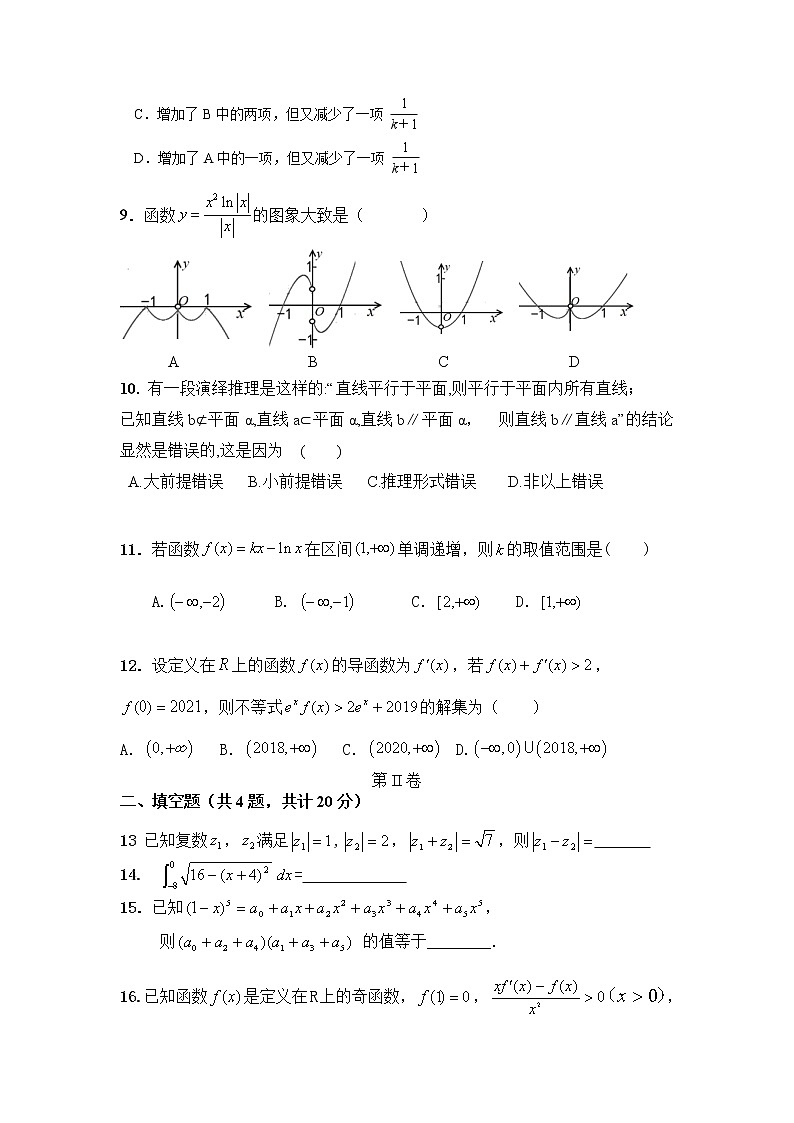 C. 增加了 B 中的两项,但又减少了一项 1/(k+1)
D. 增加了 A 中的一项,但又减少了一项 1/(k+1)
9. 函数 y = x² ln|x| / |x| 的图象大致是（　　）
y −1 O 1 x
y 1 −1 O 1 x −1
y 1 −1 O 1 x
y −1 O 1 x
A B C D
10. 有一段演绎推理是这样的:“直线平行于平面,则平行于平面内所有直线;
已知直线 b⊄平面 α,直线 a⊂平面 α,直线 b∥平面 α, 则直线 b∥直线 a”的结论
显然是错误的,这是因为 (　　)
A.大前提错误 B.小前提错误 C.推理形式错误 D.非以上错误
11. 若函数 f(x) = kx − ln x 在区间 (1,+∞) 单调递增，则 k 的取值范围是(　　)
A. (−∞,−2) B. (−∞,−1) C. [2,+∞) D. [1,+∞)
12. 设定义在 R 上的函数 f(x) 的导函数为 f′(x)，若 f(x) + f′(x) > 2，
f(0) = 2021，则不等式 eˣ f(x) > 2eˣ + 2019 的解集为（　　）
A. (0,+∞) B. (2018,+∞) C. (2020,+∞) D. (−∞,0)∪(2018,+∞)
第Ⅱ卷
二、填空题（共4题，共计20分）
13 已知复数 z₁，z₂ 满足 |z₁| = 1，|z₂| = 2，|z₁ + z₂| = √7，则 |z₁ − z₂| =_______
14. ∫₋₈⁰ √(16 − (x+4)²) dx =_____________
15. 已知 (1−x)⁵ = a₀ + a₁x + a₂x² + a₃x³ + a₄x⁴ + a₅x⁵，
则 (a₀ + a₂ + a₄)(a₁ + a₃ + a₅) 的值等于________.
16. 已知函数 f(x) 是定义在 R 上的奇函数，f(1) = 0，(xf′(x) − f(x))/x² > 0 (x > 0)，